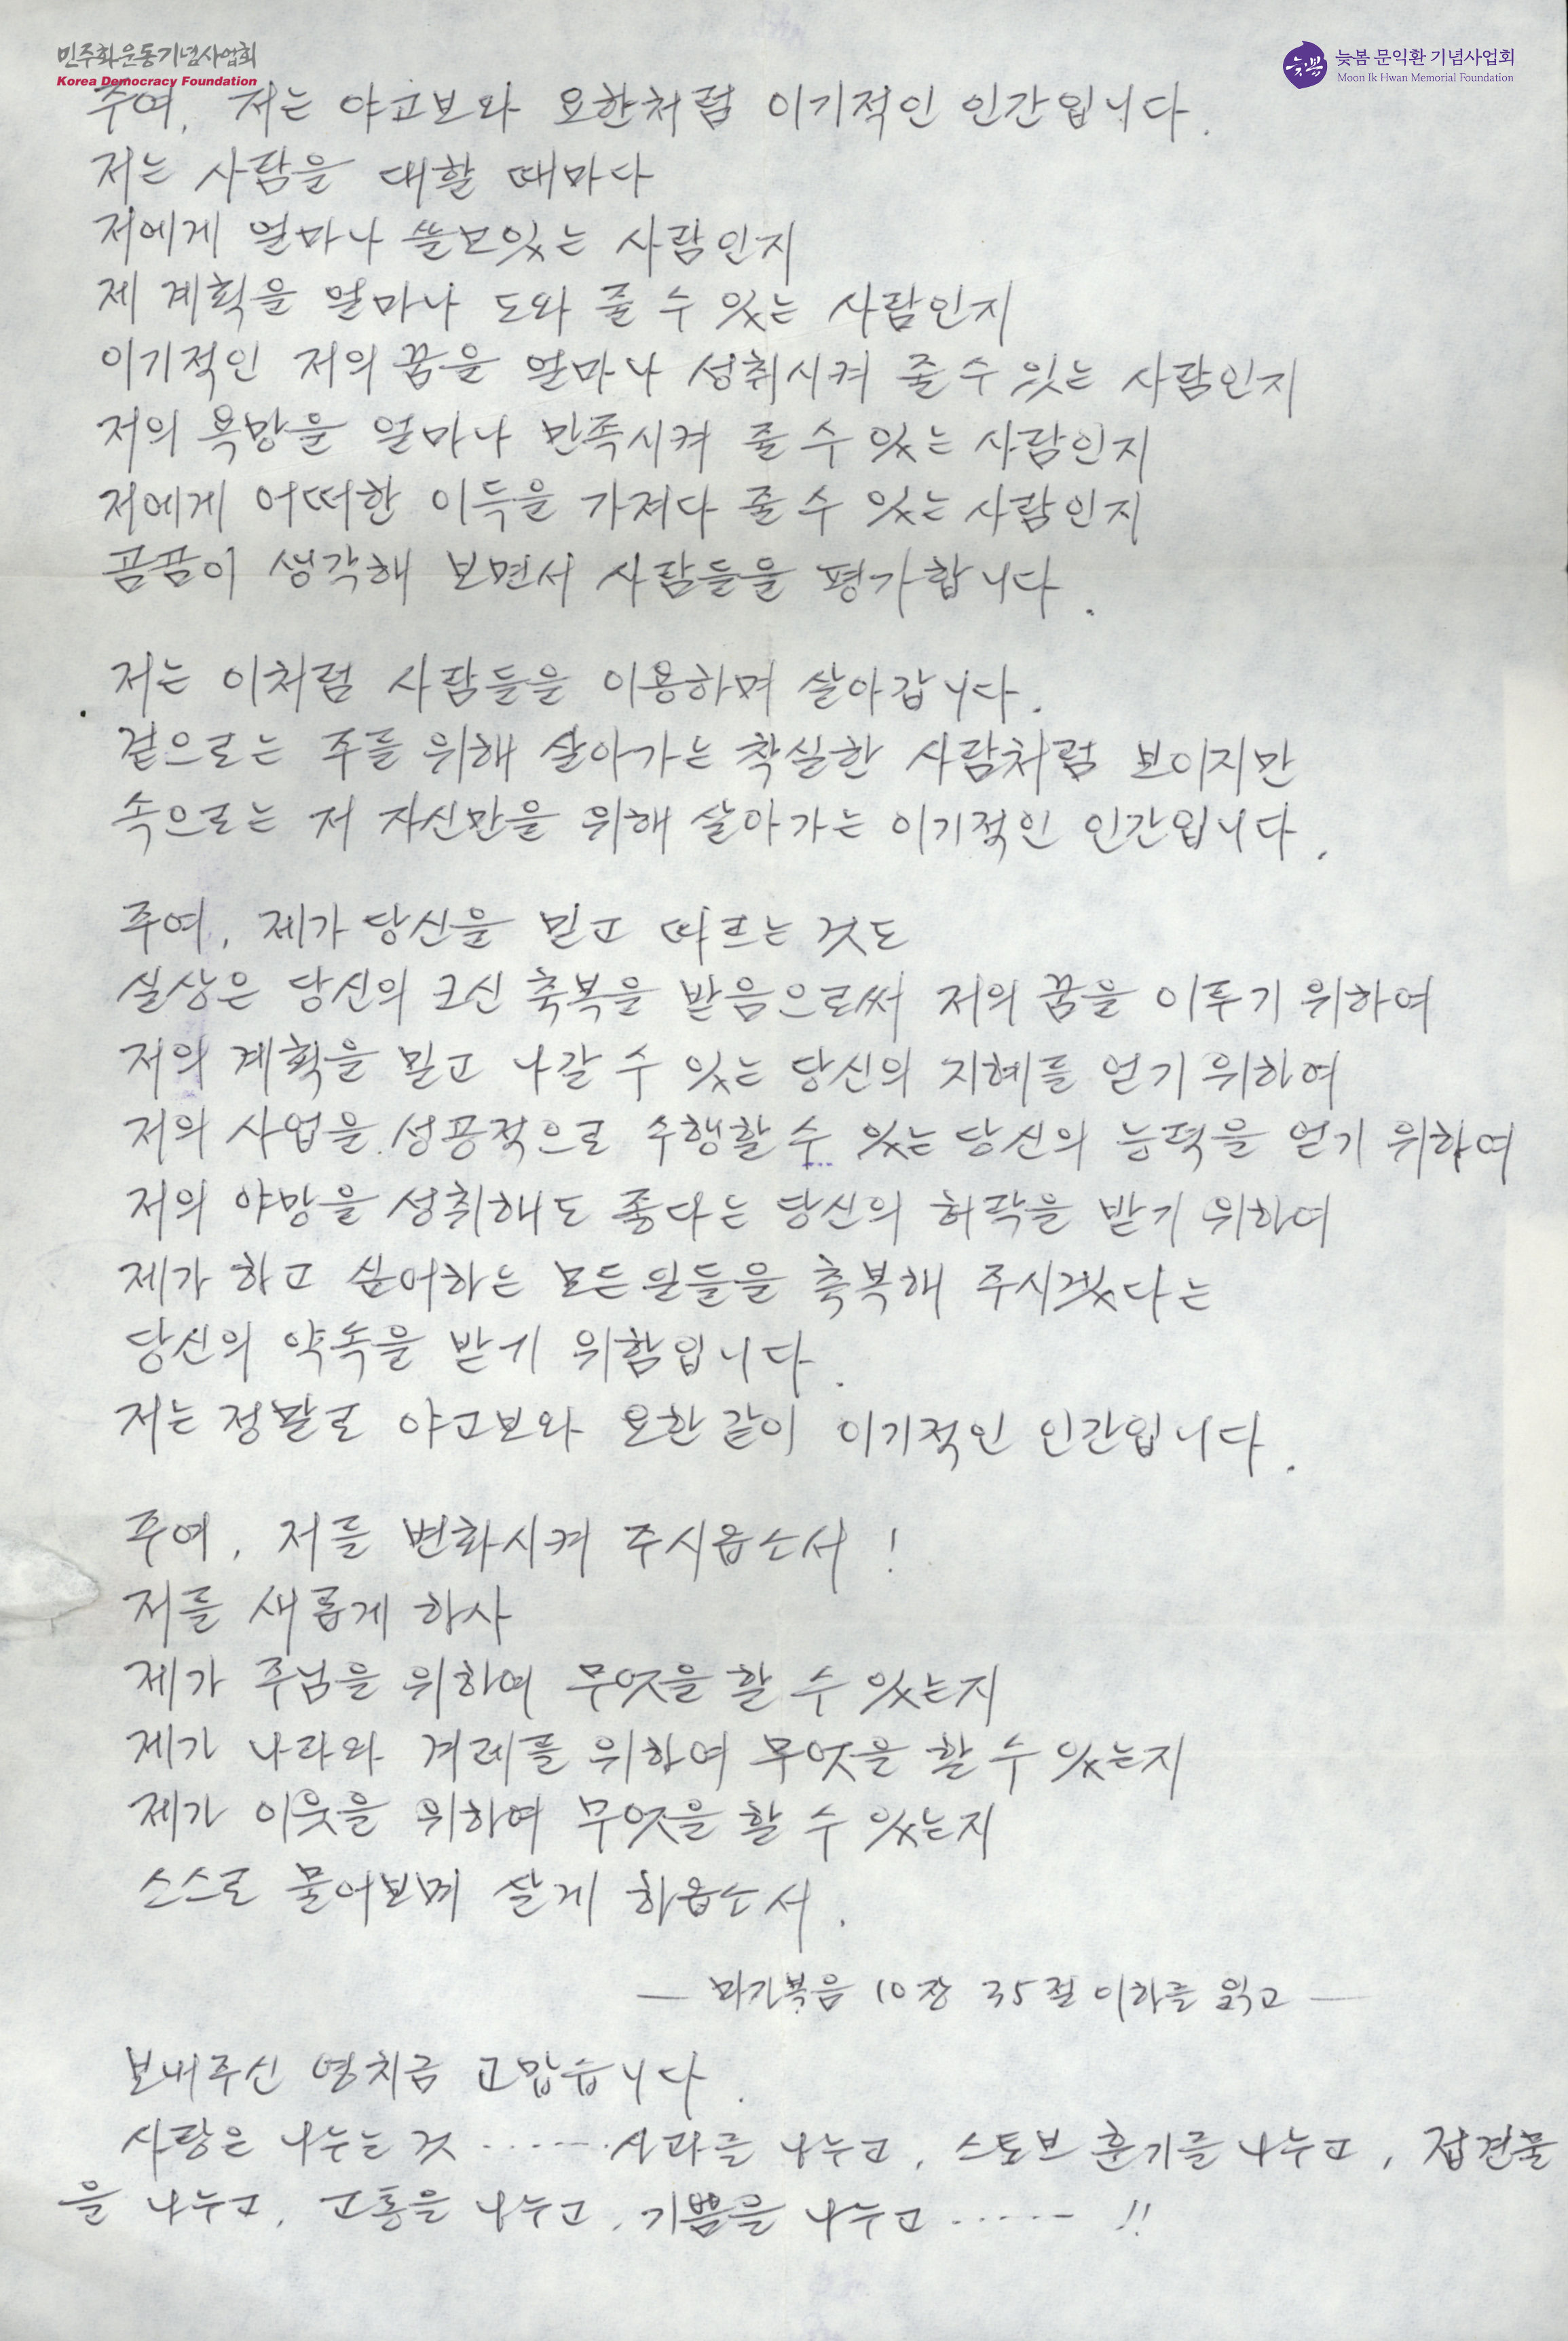 민주화운동기념사업회
Korea Democracy Foundation
늦봄 문익환 기념사업회
Moon Ik Hwan Memorial Foundation
늦봄
주여, 저는 야고보와 요한처럼 이기적인 인간입니다.
저는 사람을 대할 때마다
저에게 얼마나 쓸모있는 사람인지
제 계획을 얼마나 도와 줄 수 있는 사람인지
이기적인 저의 꿈을 얼마나 성취시켜 줄 수 있는 사람인지
저의 욕망을 얼마나 만족시켜 줄 수 있는 사람인지
저에게 어떠한 이득을 가져다 줄 수 있는 사람인지
곰곰이 생각해 보면서 사람들을 평가합니다.
저는 이처럼 사람들을 이용하며 살아갑니다.
겉으로는 주를 위해 살아가는 착실한 사람처럼 보이지만
속으로는 저 자신만을 위해 살아가는 이기적인 인간입니다.
주여, 제가 당신을 믿고 따르는 것도
실상은 당신의 크신 축복을 받음으로써 저의 꿈을 이루기 위하여
저의 계획을 밀고 나갈 수 있는 당신의 지혜를 얻기 위하여
저의 사업을 성공적으로 수행할 수 있는 당신의 능력을 얻기 위하여
저의 야망을 성취해도 좋다는 당신의 허락을 받기 위하여
제가 하고 싶어하는 모든 일들을 축복해 주시겠다는
당신의 약속을 받기 위함입니다.
저는 정말로 야고보와 요한 같이 이기적인 인간입니다.
주여, 저를 변화시켜 주시옵소서!
저를 새롭게 하사
제가 주님을 위하여 무엇을 할 수 있는지
제가 나라와 겨레를 위하여 무엇을 할 수 있는지
제가 이웃을 위하여 무엇을 할 수 있는지
스스로 물어보며 살게 하옵소서.
— 마가복음 10장 35절 이하를 읽고 —
보내주신 영치금 고맙습니다.
사랑은 나누는 것 ······ 사과를 나누고, 스토브 훈기를 나누고, 접견물
을 나누고, 고통을 나누고, 기쁨을 나누고 ····· !!